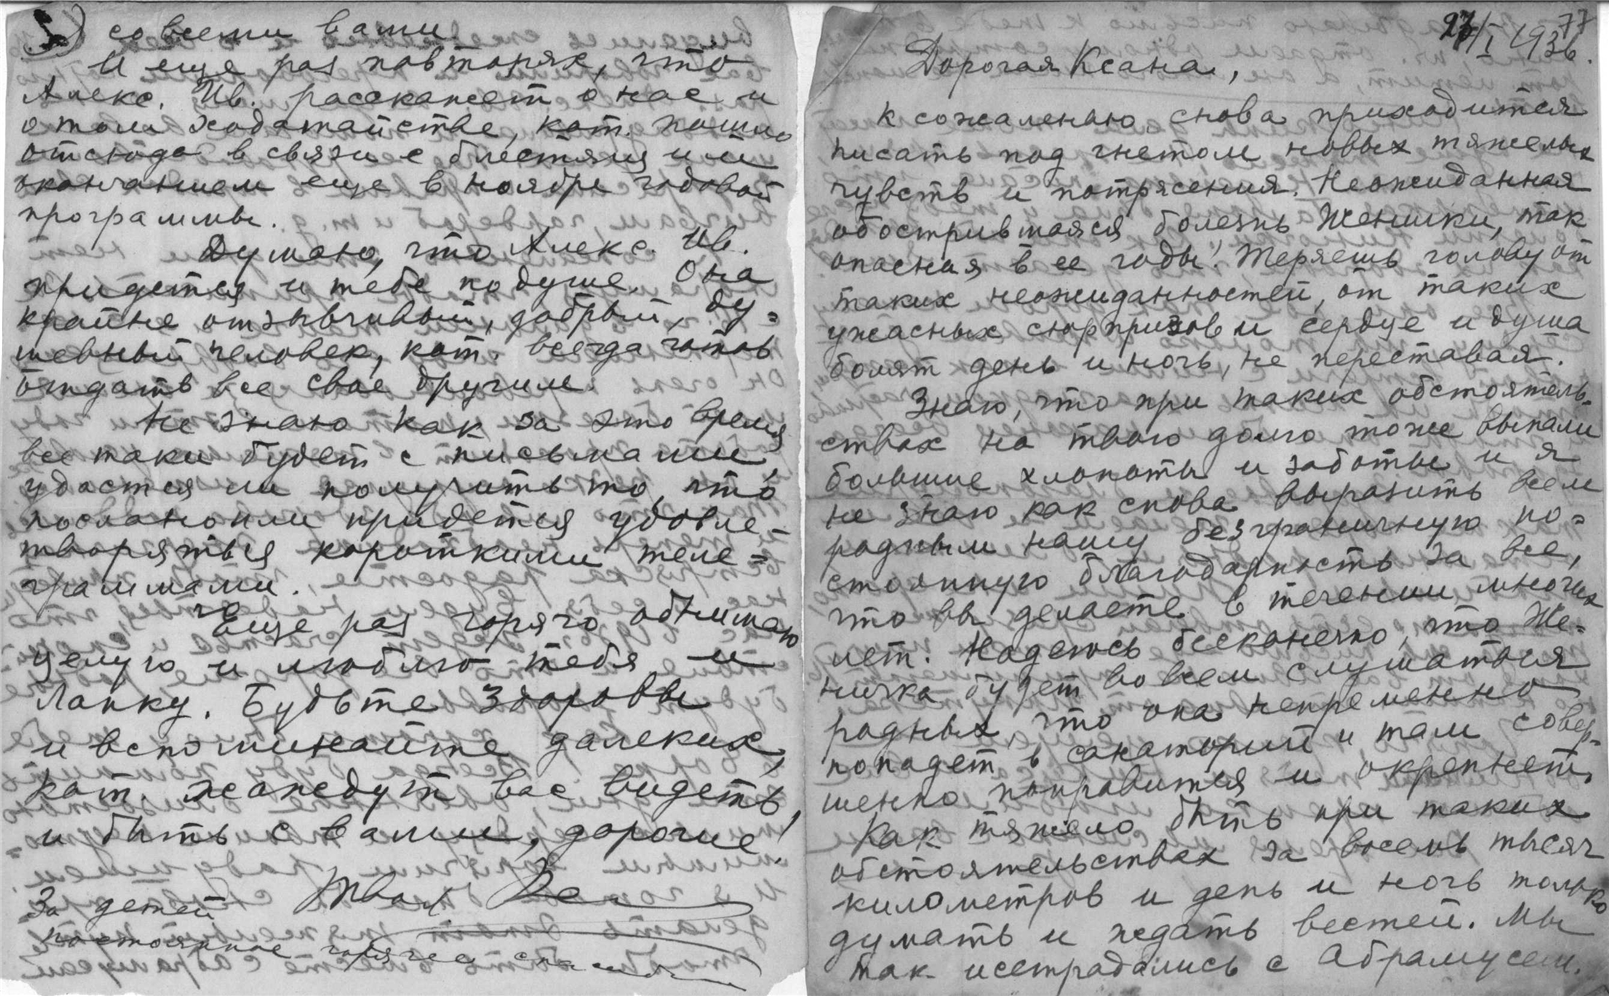 5) со всеми вами.
И еще раз повторяю, что
Алекс. Ив. расскажет о нас и
о том ходатайстве, кот. пошло
отсюда в связи с блестящим
окончанием еще в ноябре годовой
программы.
Думаю, что Алекс. Ив.
придется и тебе по душе. Она
крайне отзывчивый, добрый, ду=
шевный человек, кот. всегда готов
отдать все свое другим.
Не знаю как за это время
все таки будет с письмами,
удастся ли получить то, что
послано или придется удовле=
творяться короткими теле=
граммами.
Еще раз горячо обнимаю
целую и люблю тебя и
Лапку. Будьте здоровы
и вспоминайте далеких,
кот. жаждут вас видеть
и быть с вами, дорогие!
Твоя
За детей
постоянное горячее спасибо
77
27/I 1936.
Дорогая Ксана,
к сожалению снова приходится
писать под гнетом новых тяжелых
чувств и потрясения. Неожиданная
обострившаяся болезнь Женички, так
опасная в ее годы! Теряешь голову от
таких неожиданностей, от таких
ужасных сюрпризов и сердце и душа
болят день и ночь, не переставая.
Знаю, что при таких обстоятель-
ствах на твою долю тоже выпали
большие хлопоты и заботы и я
не знаю как снова выразить всем
родным нашу безграничную по=
стоянную благодарность за все,
что вы делаете в течении многих
лет. Надеюсь бесконечно, что Же=
ничка будет во всем слушаться
родных, что она непременно
попадет в санаторий и там совер-
шенно поправится и окрепнет.
Как тяжело быть при таких
обстоятельствах за восемь тысяч
километров и день и ночь только
думать и ждать вестей. Мы
так исстрадались с Абрамусем.